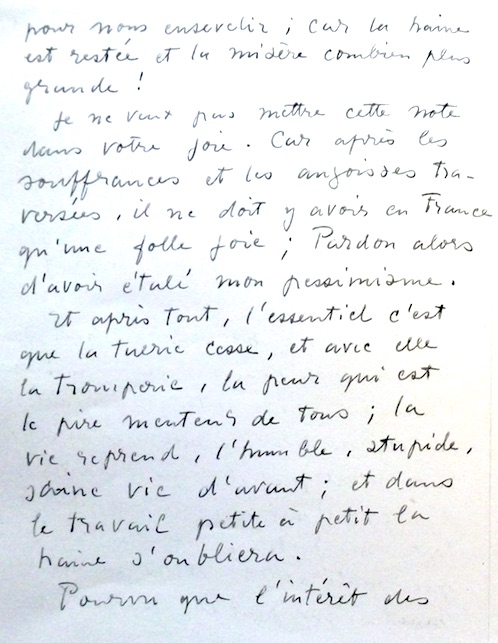 pour nous ensevelir ; car la haine
est restée et la misère combien plus
grande !
Je ne veux pas mettre cette note
dans votre joie. Car après les
souffrances et les angoisses tra-
versées, il ne doit y avoir en France
qu'une folle joie ; Pardon alors
d'avoir étalé mon pessimisme.
Et après tout, l'essentiel c'est
que la tuerie cesse, et avec elle
la tromperie, la peur qui est
le pire menteur de tous ; la
vie reprend, l'humble, stupide,
saine vie d'avant ; et dans
le travail petit à petit la
haine s'oubliera.
Pourvu que l'intérêt des